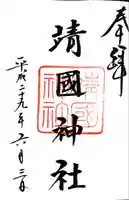 奉拝
靖國神社
平成二十九年六月三日
靖國神社